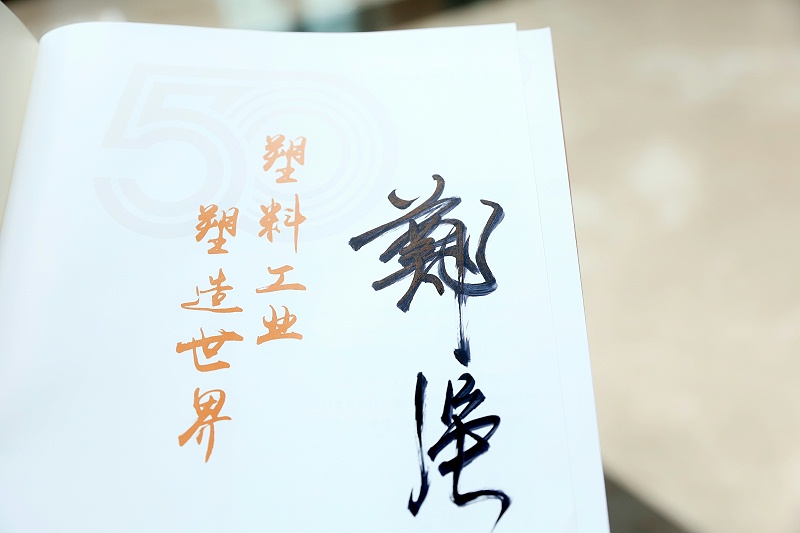 鄭强
塑料工业
塑造世界
50